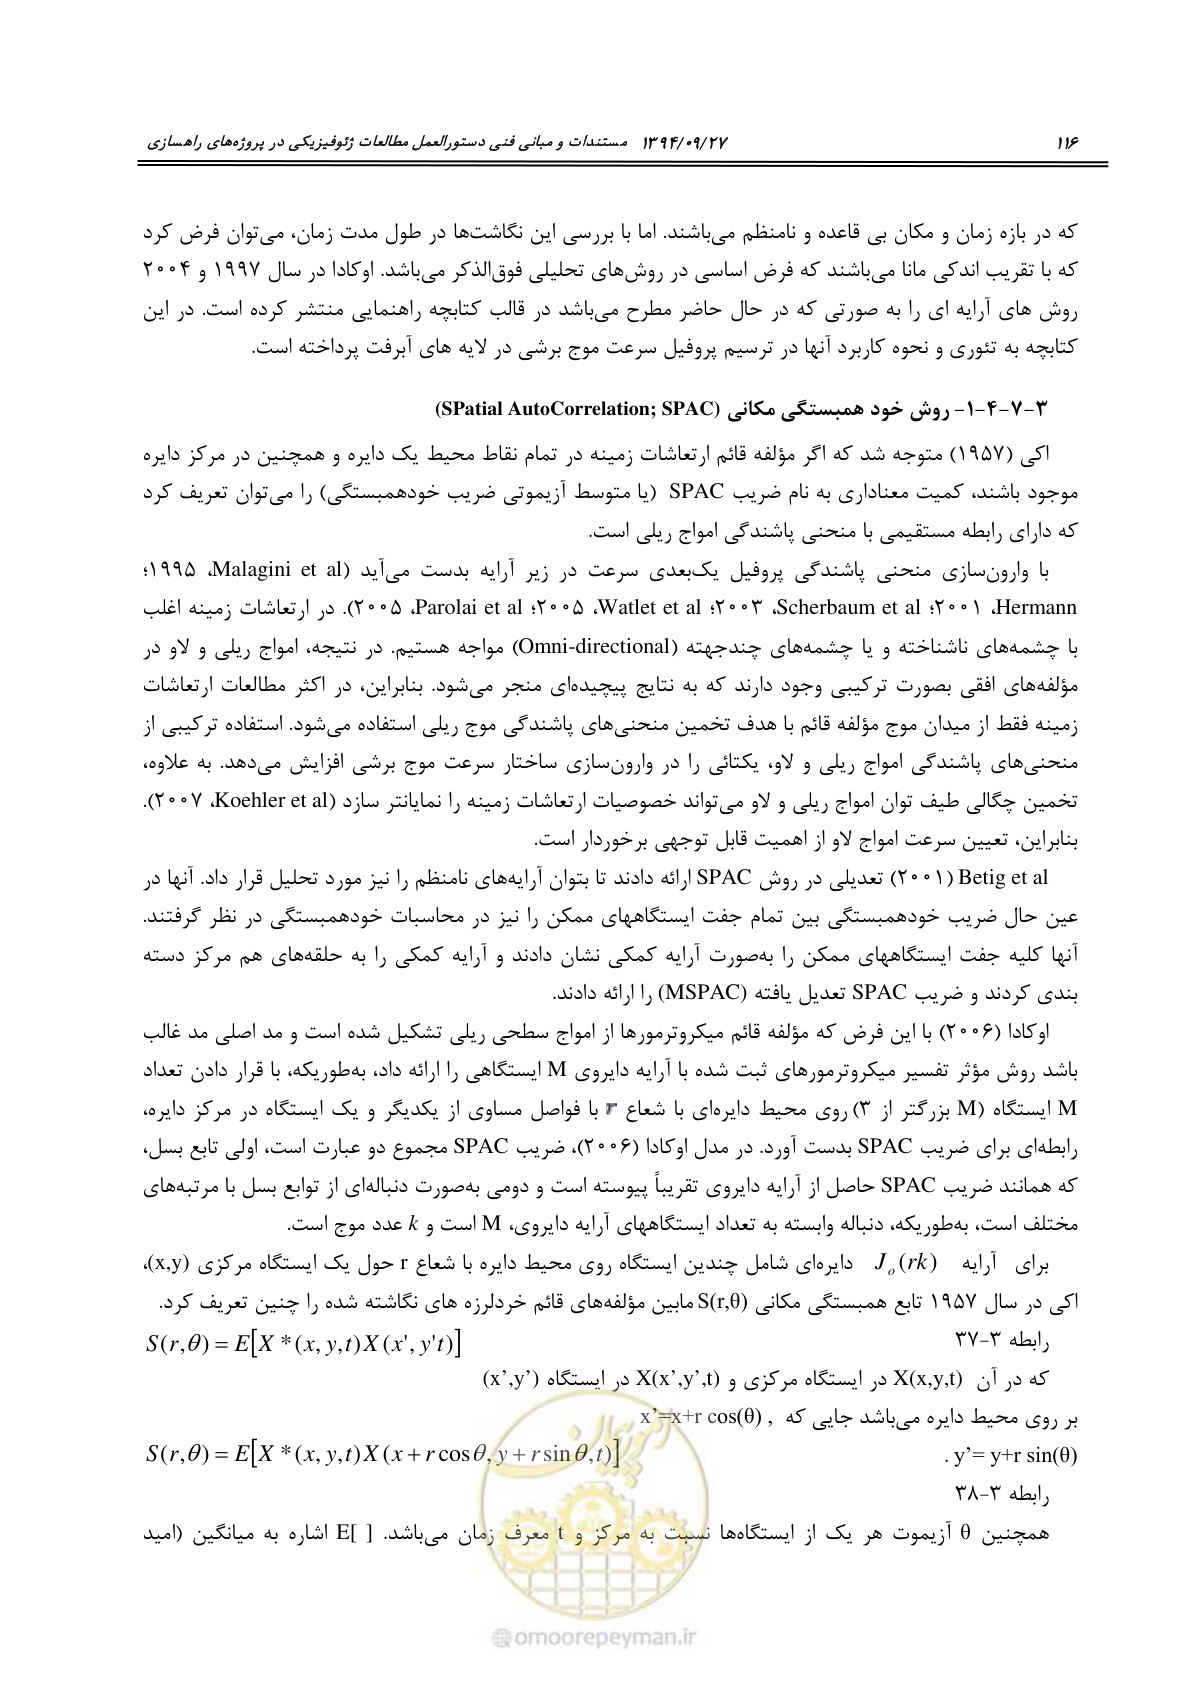 ۱۱۶ ۱۳۹۴/۰۹/۲۷ مستندات و مبانی فنی دستورالعمل مطالعات ژئوفیزیکی در پروژه‌های راهسازی
که در بازه زمان و مکان بی قاعده و نامنظم می‌باشند. اما با بررسی این نگاشت‌ها در طول مدت زمان، می‌توان فرض کرد
که با تقریب اندکی مانا می‌باشند که فرض اساسی در روش‌های تحلیلی فوق‌الذکر می‌باشد. اوکادا در سال ۱۹۹۷ و ۲۰۰۴
روش های آرایه ای را به صورتی که در حال حاضر مطرح می‌باشد در قالب کتابچه راهنمایی منتشر کرده است. در این
کتابچه به تئوری و نحوه کاربرد آنها در ترسیم پروفیل سرعت موج برشی در لایه های آبرفت پرداخته است.
۳-۷-۴-۱- روش خود همبستگی مکانی (SPatial AutoCorrelation; SPAC)
اکی (۱۹۵۷) متوجه شد که اگر مؤلفه قائم ارتعاشات زمینه در تمام نقاط محیط یک دایره و همچنین در مرکز دایره
موجود باشند، کمیت معناداری به نام ضریب SPAC (یا متوسط آزیموتی ضریب خودهمبستگی) را می‌توان تعریف کرد
که دارای رابطه مستقیمی با منحنی پاشندگی امواج ریلی است.
با وارون‌سازی منحنی پاشندگی پروفیل یک‌بعدی سرعت در زیر آرایه بدست می‌آید (Malagini et al، ۱۹۹۵؛
Hermann، ۲۰۰۱؛ Scherbaum et al، ۲۰۰۳؛ Watlet et al، ۲۰۰۵؛ Parolai et al، ۲۰۰۵). در ارتعاشات زمینه اغلب
با چشمه‌های ناشناخته و یا چشمه‌های چندجهته (Omni-directional) مواجه هستیم. در نتیجه، امواج ریلی و لاو در
مؤلفه‌های افقی بصورت ترکیبی وجود دارند که به نتایج پیچیده‌ای منجر می‌شود. بنابراین، در اکثر مطالعات ارتعاشات
زمینه فقط از میدان موج مؤلفه قائم با هدف تخمین منحنی‌های پاشندگی موج ریلی استفاده می‌شود. استفاده ترکیبی از
منحنی‌های پاشندگی امواج ریلی و لاو، یکتائی را در وارون‌سازی ساختار سرعت موج برشی افزایش می‌دهد. به علاوه،
تخمین چگالی طیف توان امواج ریلی و لاو می‌تواند خصوصیات ارتعاشات زمینه را نمایانتر سازد (Koehler et al، ۲۰۰۷).
بنابراین، تعیین سرعت امواج لاو از اهمیت قابل توجهی برخوردار است.
Betig et al (۲۰۰۱) تعدیلی در روش SPAC ارائه دادند تا بتوان آرایه‌های نامنظم را نیز مورد تحلیل قرار داد. آنها در
عین حال ضریب خودهمبستگی بین تمام جفت ایستگاههای ممکن را نیز در محاسبات خودهمبستگی در نظر گرفتند.
آنها کلیه جفت ایستگاههای ممکن را به‌صورت آرایه کمکی نشان دادند و آرایه کمکی را به حلقه‌های هم مرکز دسته
بندی کردند و ضریب SPAC تعدیل یافته (MSPAC) را ارائه دادند.
اوکادا (۲۰۰۶) با این فرض که مؤلفه قائم میکروترمورها از امواج سطحی ریلی تشکیل شده است و مد اصلی مد غالب
باشد روش مؤثر تفسیر میکروترمورهای ثبت شده با آرایه دایروی M ایستگاهی را ارائه داد، به‌طوریکه، با قرار دادن تعداد
M ایستگاه (M بزرگتر از ۳) روی محیط دایره‌ای با شعاع r با فواصل مساوی از یکدیگر و یک ایستگاه در مرکز دایره،
رابطه‌ای برای ضریب SPAC بدست آورد. در مدل اوکادا (۲۰۰۶)، ضریب SPAC مجموع دو عبارت است، اولی تابع بسل،
که همانند ضریب SPAC حاصل از آرایه دایروی تقریباً پیوسته است و دومی به‌صورت دنباله‌ای از توابع بسل با مرتبه‌های
مختلف است، به‌طوریکه، دنباله وابسته به تعداد ایستگاههای آرایه دایروی، M است و k عدد موج است.
برای آرایه J_o(rk) دایره‌ای شامل چندین ایستگاه روی محیط دایره با شعاع r حول یک ایستگاه مرکزی (x,y)،
اکی در سال ۱۹۵۷ تابع همبستگی مکانی S(r,θ) مابین مؤلفه‌های قائم خردلرزه های نگاشته شده را چنین تعریف کرد.
رابطه ۳-۳۷ S(r,θ) = E[X*(x, y,t)X(x', y't)]
که در آن X(x,y,t) در ایستگاه مرکزی و X(x’,y’,t) در ایستگاه (x’,y’)
بر روی محیط دایره می‌باشد جایی که x’=x+r cos(θ) ,
y’= y+r sin(θ) . S(r,θ) = E[X*(x, y,t)X(x + r cosθ, y + r sinθ,t)]
رابطه ۳-۳۸
همچنین θ آزیموت هر یک از ایستگاه‌ها نسبت به مرکز و t معرف زمان می‌باشد. E[ ] اشاره به میانگین (امید
امور پیمان
@omoorepeyman.ir